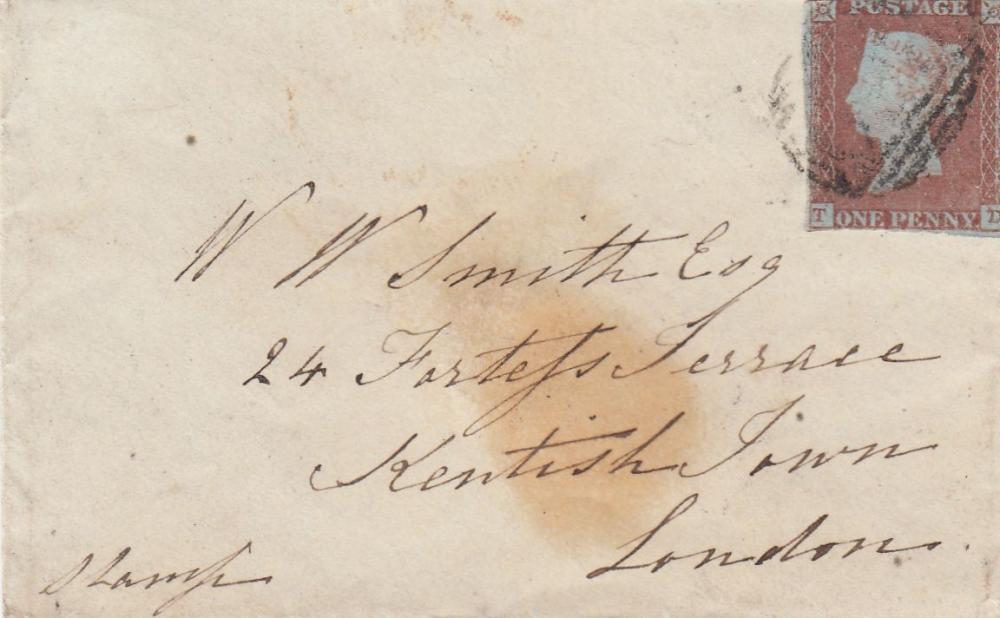 POSTAGE
T ONE PENNY.
W W Smith Esq
24 Fortess Terrace
Kentish Town
London.
Stamp